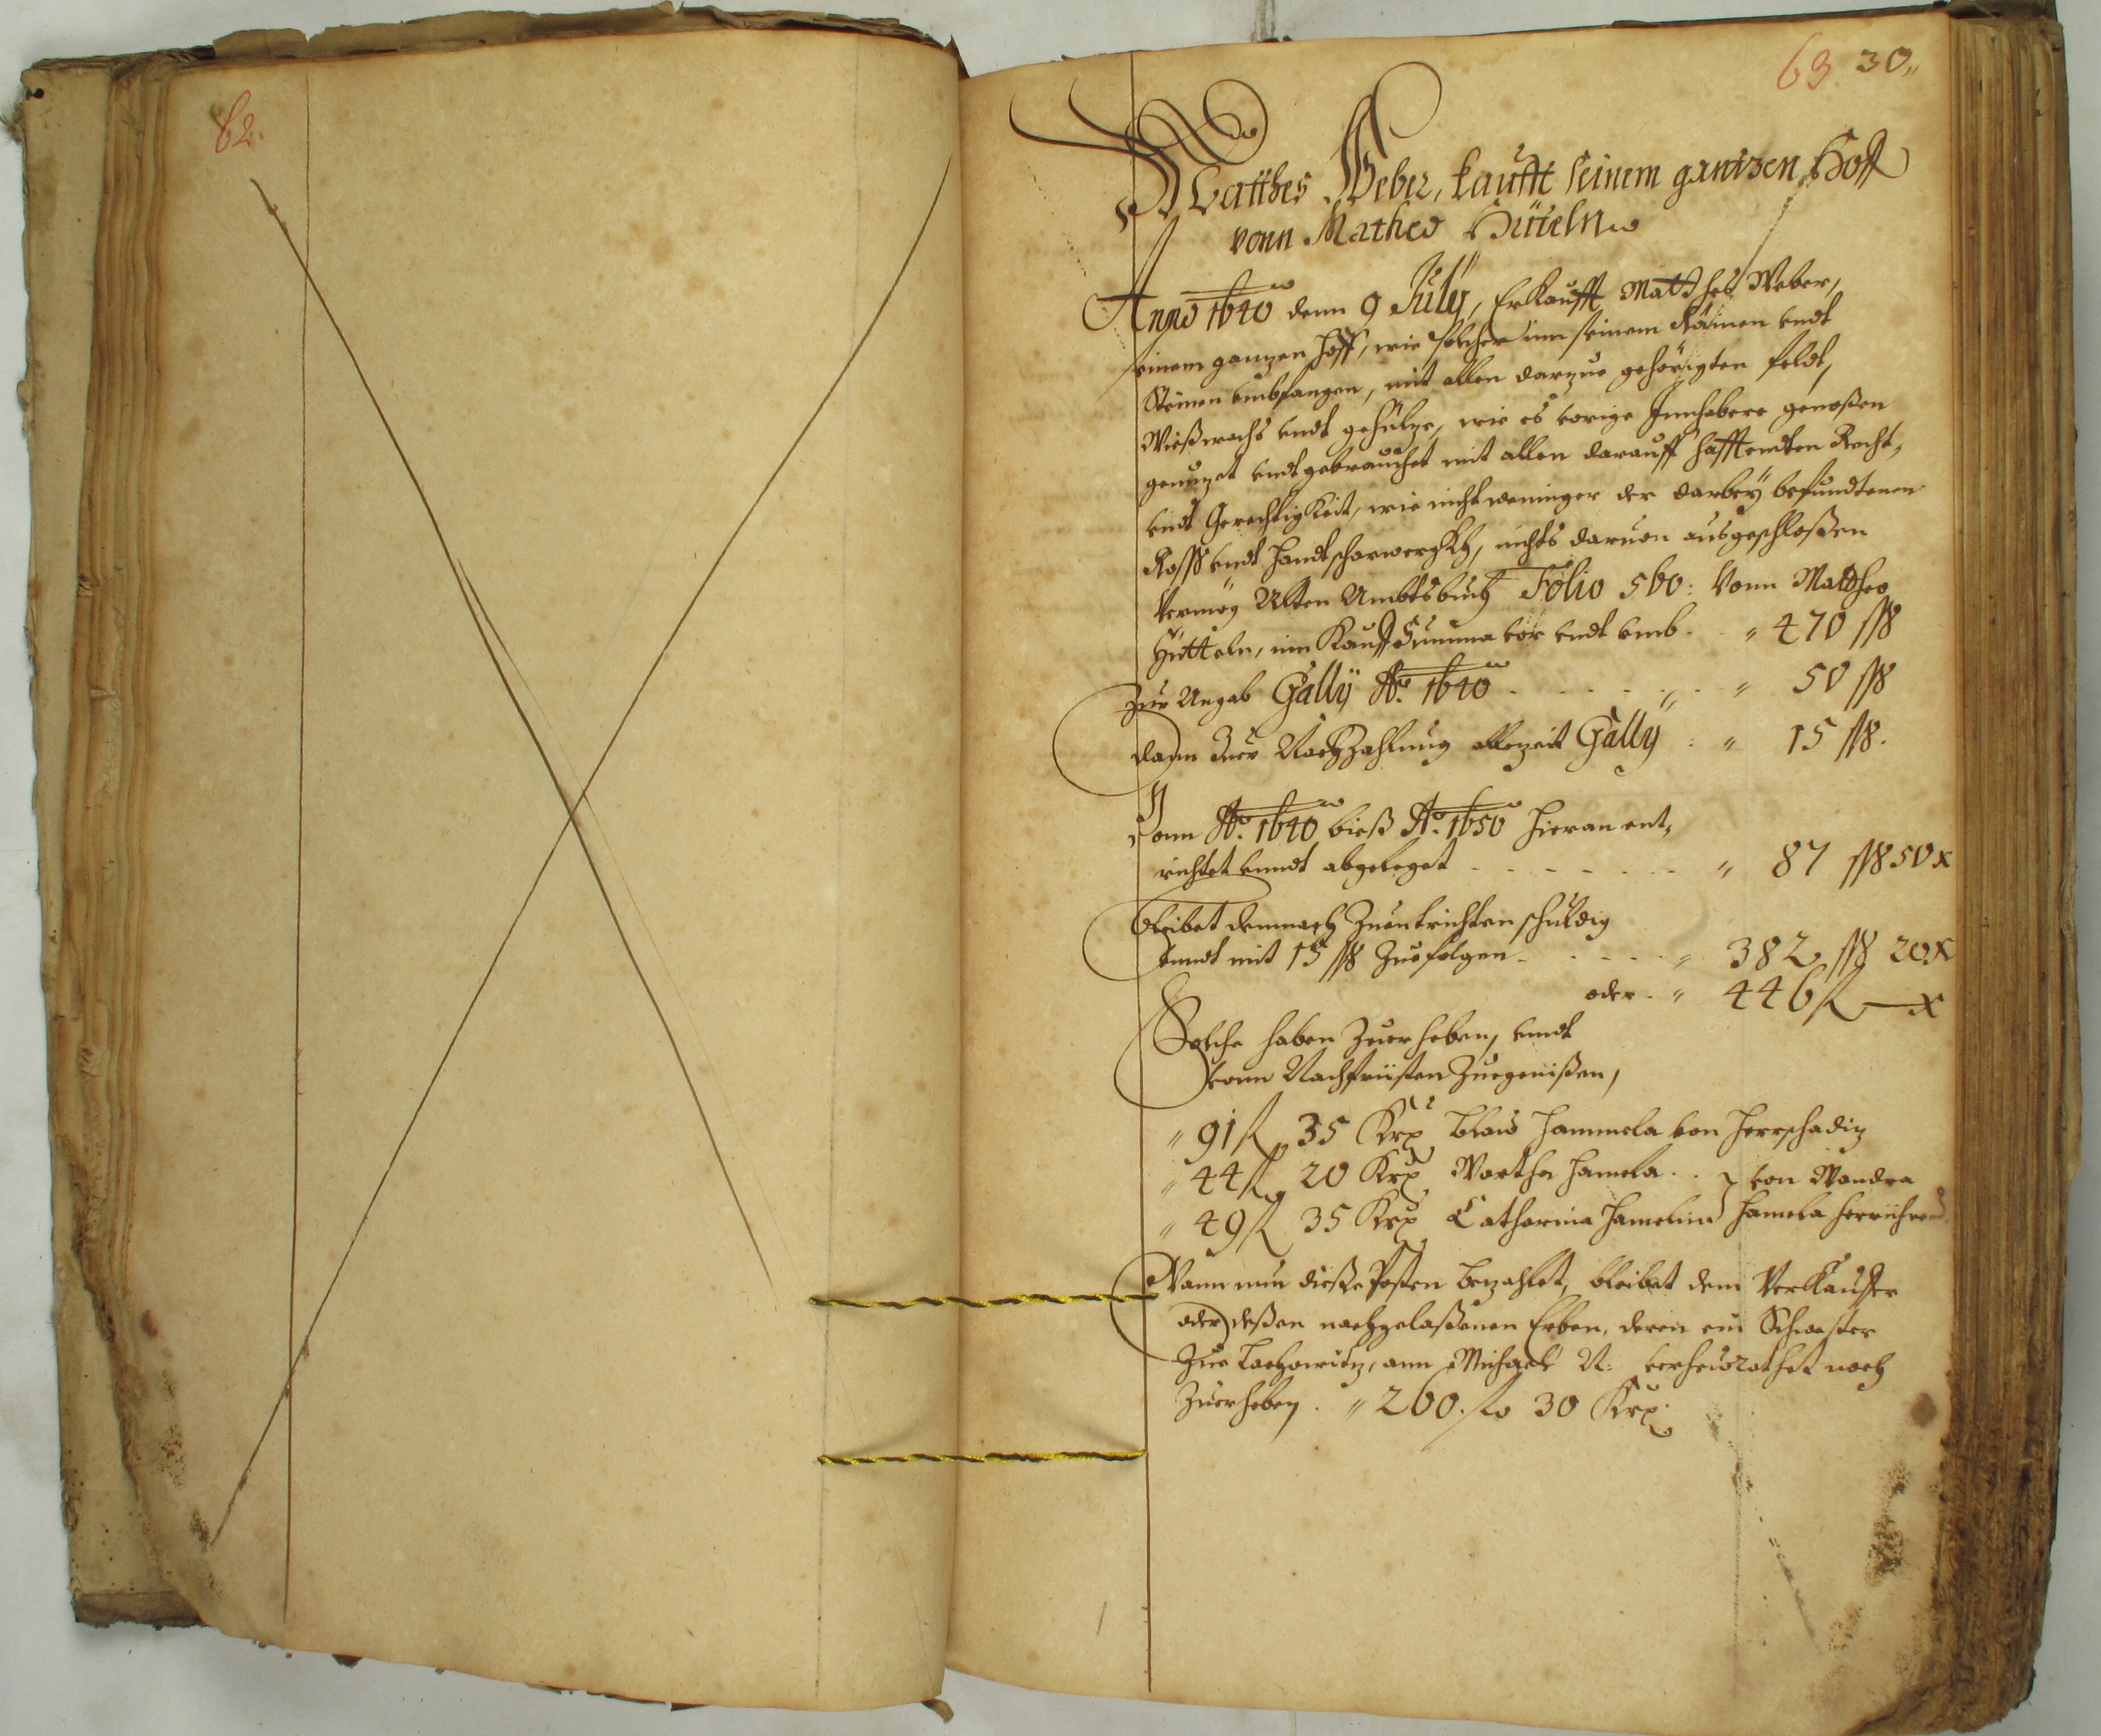 62.
63. 30„
Matthes Weber, kaufft seinem gantzen Hoff
vonn Matheo Hüteln
Anno 1640 denn 9 July, Erkaufft Matthes Weber,
einem ganzen Hoff, wie solcher inn seinem Räinen undt
Steinen umbfangen, mit allen darzue gehörigten feldt,
Wießwachs undt gehültze, wie es vorige Innhabere genoßen
genuzet undt gebrauchet mit allen darauff hafftendten Recht„
undt Gerechtigkeit, wie nicht weniger der darbey befundtenen
Roß undt Handtscharwergkh, nichts daruon ausgeschloßen
Vermög Alten Ambtsbuch Folio 560: Vonn Matheo
Hütteln, inn Kauff Summa vor undt umb „ 470 ßß
Zur Angab Gally Ao. 1640 „ 50 ßß
dann Zuer Nachzahlung allezeit Gally „ 15 ßß.
Vonn Ao. 1640 bieß Ao. 1650 hieran ent„
richtet unndt abgeleget „ 87 ßß 50 x
Bleibet demnach Zuentrichten schuldig
unndt mit 15 ßß Zuefolgen „ 382 ßß 20 x
oder „ 446 fl — x
Solche haben Zuerheben, undt
vonn Nachfristen Zuegenißen,
„ 91 fl 35 Krx Blaß Hammela von Herrschadiz
„ 44 fl 20 Krx Martha Hamela . . von Wandra
„ 49 fl 35 Krx Catharina Hamelin Hamela herrührend
Wann nun dieße Posten bezahlet, bleibet dem Verkauffer
oder deßen nachgelaßenen Erben, deren ein Schwester
Zue Lachowitz, ann Michael N: verheuratet noch
Zuerheben. „ 260. fl 30 Krx.